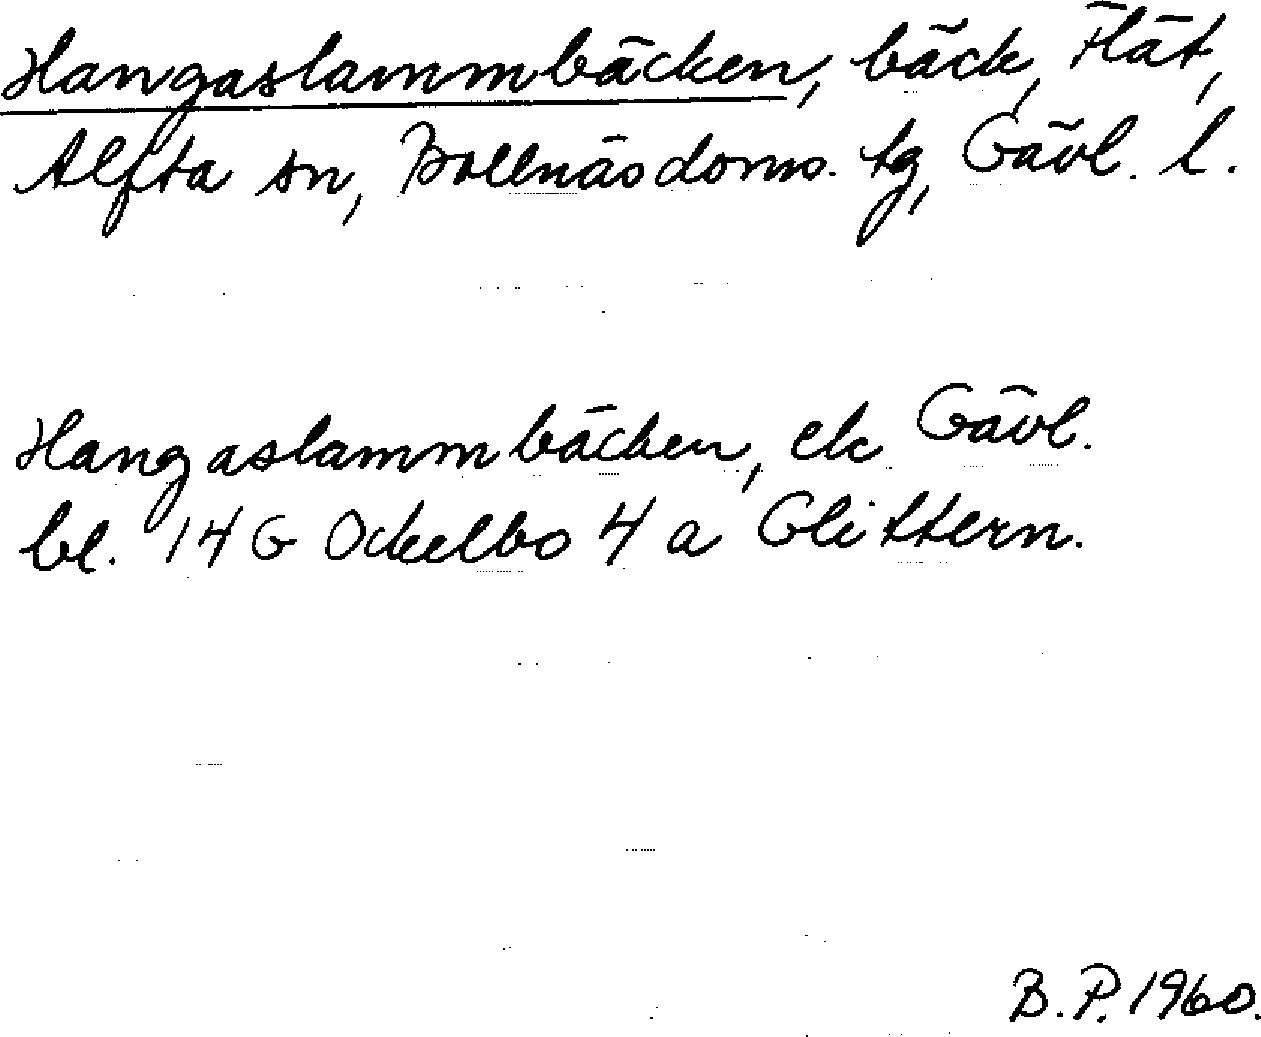 Hangaslammbäcken, bäck, Flät,
Alfta sn, Bollnäs doms. tg, Gävl. l.
Hangaslammbäcken, ek Gävl.
bl. 14 G Ockelbo 4 a Glittern.
B. P. 1960.